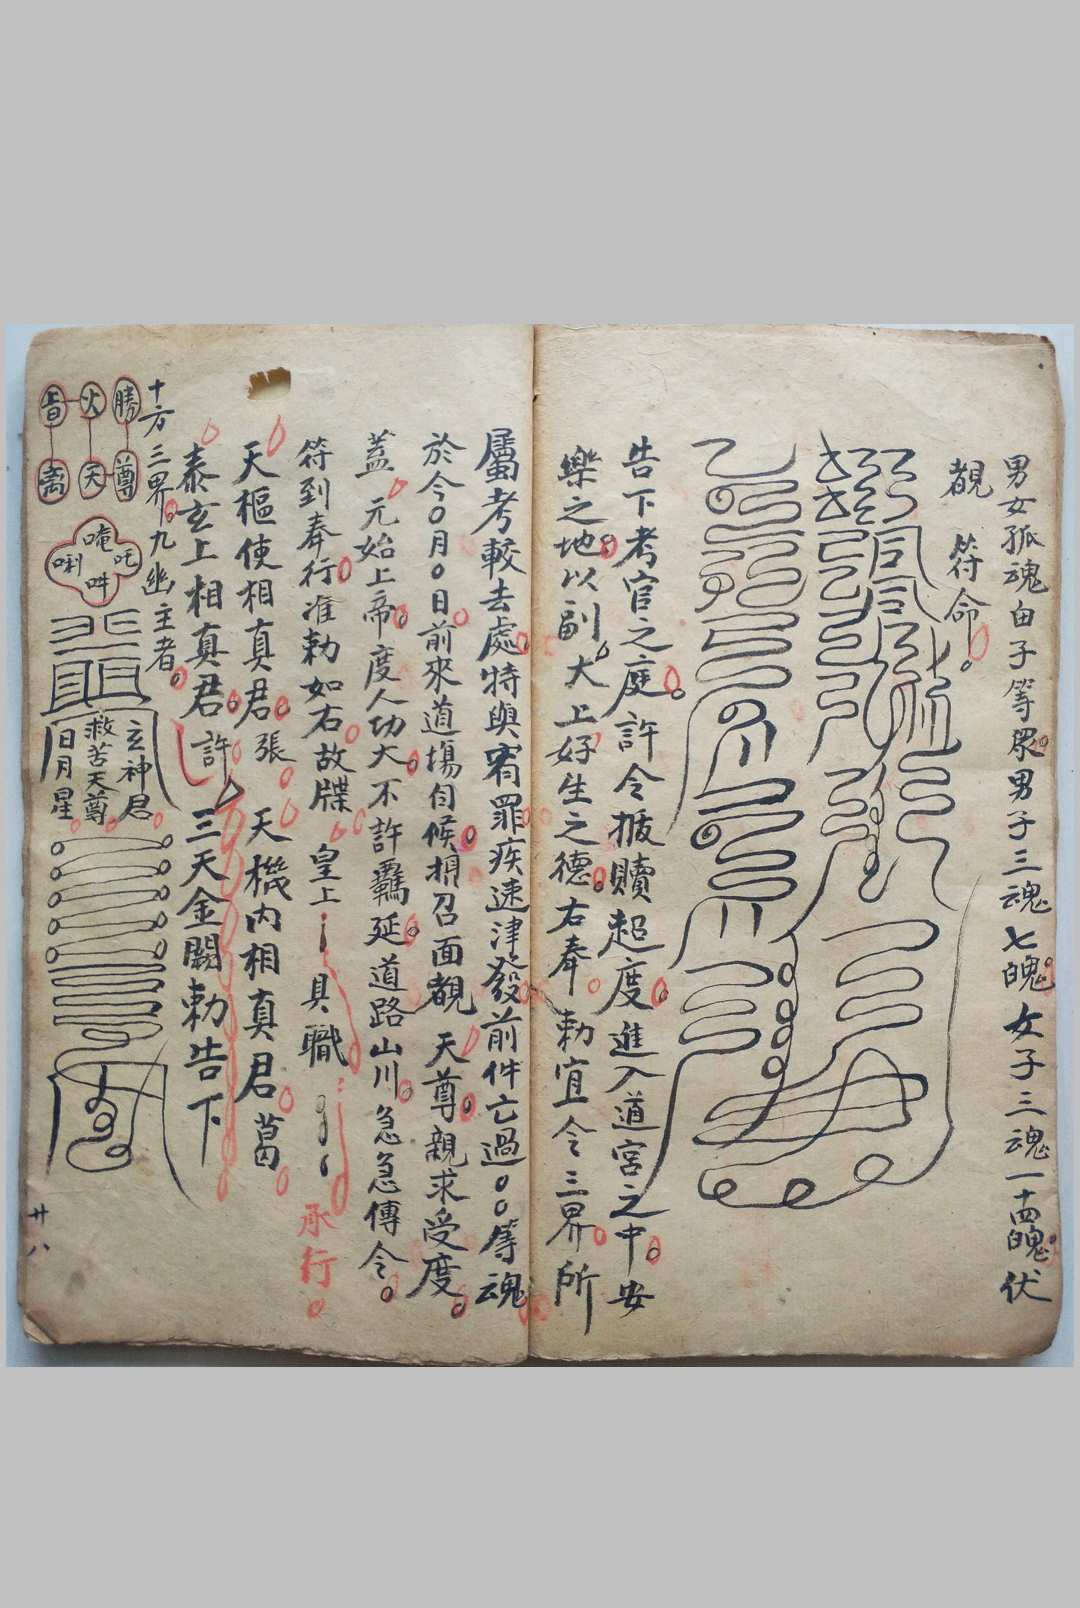 男女孤魂由子等眾男子三魂七魄女子三魂一十四魄伏
覩　符命
告下考官之庭許令拔贖超度進入道宮之中安
樂之地以副　大上好生之德右奉　勅宜令三界所
屬考較去處特與宥罪疾速津發前件亡過〇〇等魂
於今〇月〇日前來道場自候招召面覩　天尊親求受度
蓋　元始上帝度人功大不許羈延道路山川急急傳令
符到奉行准勅如右故牒　皇上　具職　承行
天樞使相真君張　天機內相真君葛
泰玄上相真君許　三天金闕勅告下
十方三界九幽主者
勝　尊
火　天
離
唵　吽　唎　吒
玄神君
救苦天尊
日月星
廿八